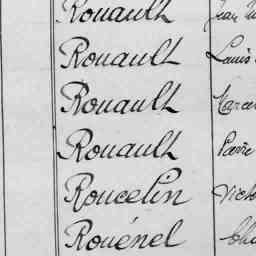 Rouault Jean
Rouault Louis
Rouault Marcel
Rouault Pierre
Roucelin Victo
Rouénel